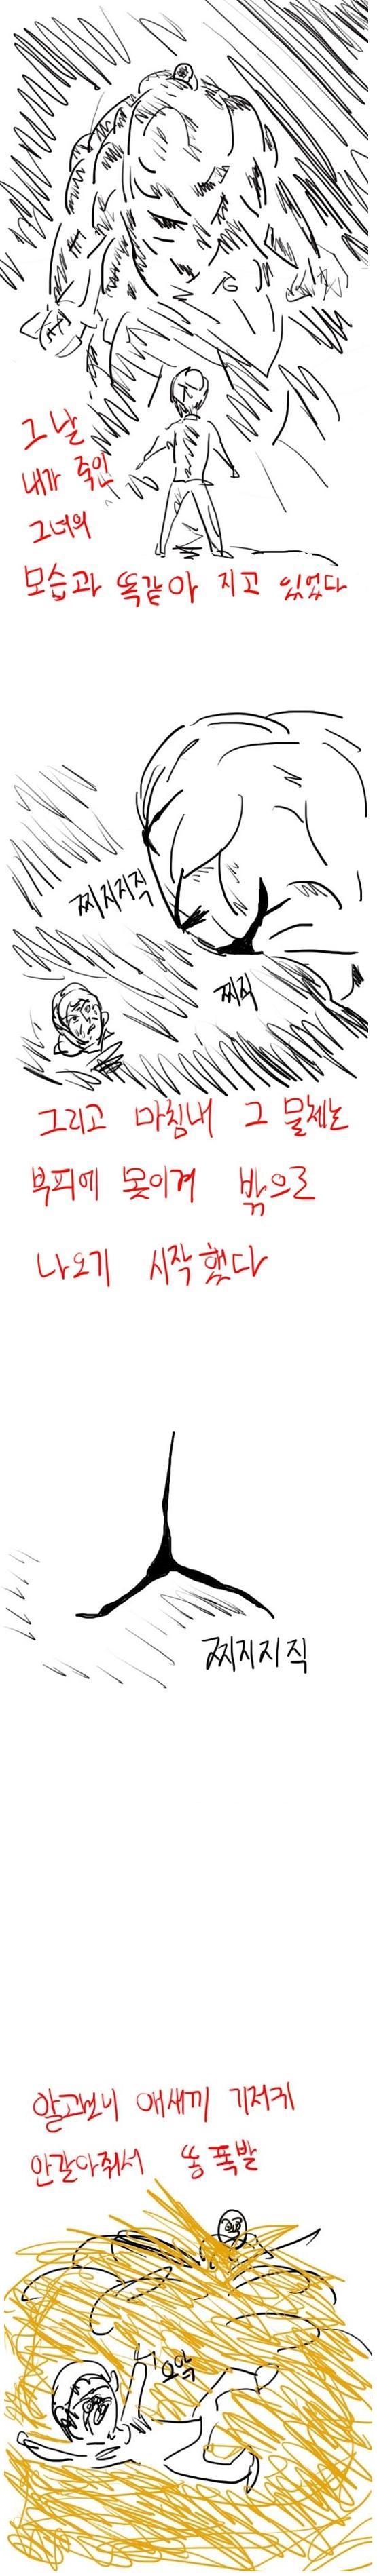 그날
내가 죽인
그녀의
모습과 똑같아 지고 있었다
찌지지직
찌직
그리고 마침내 그 물체는
부피에 못이겨 밖으로
나오기 시작했다
찌지지직
알고보니 애새끼 기저귀
안갈아줘서 똥폭발
으악